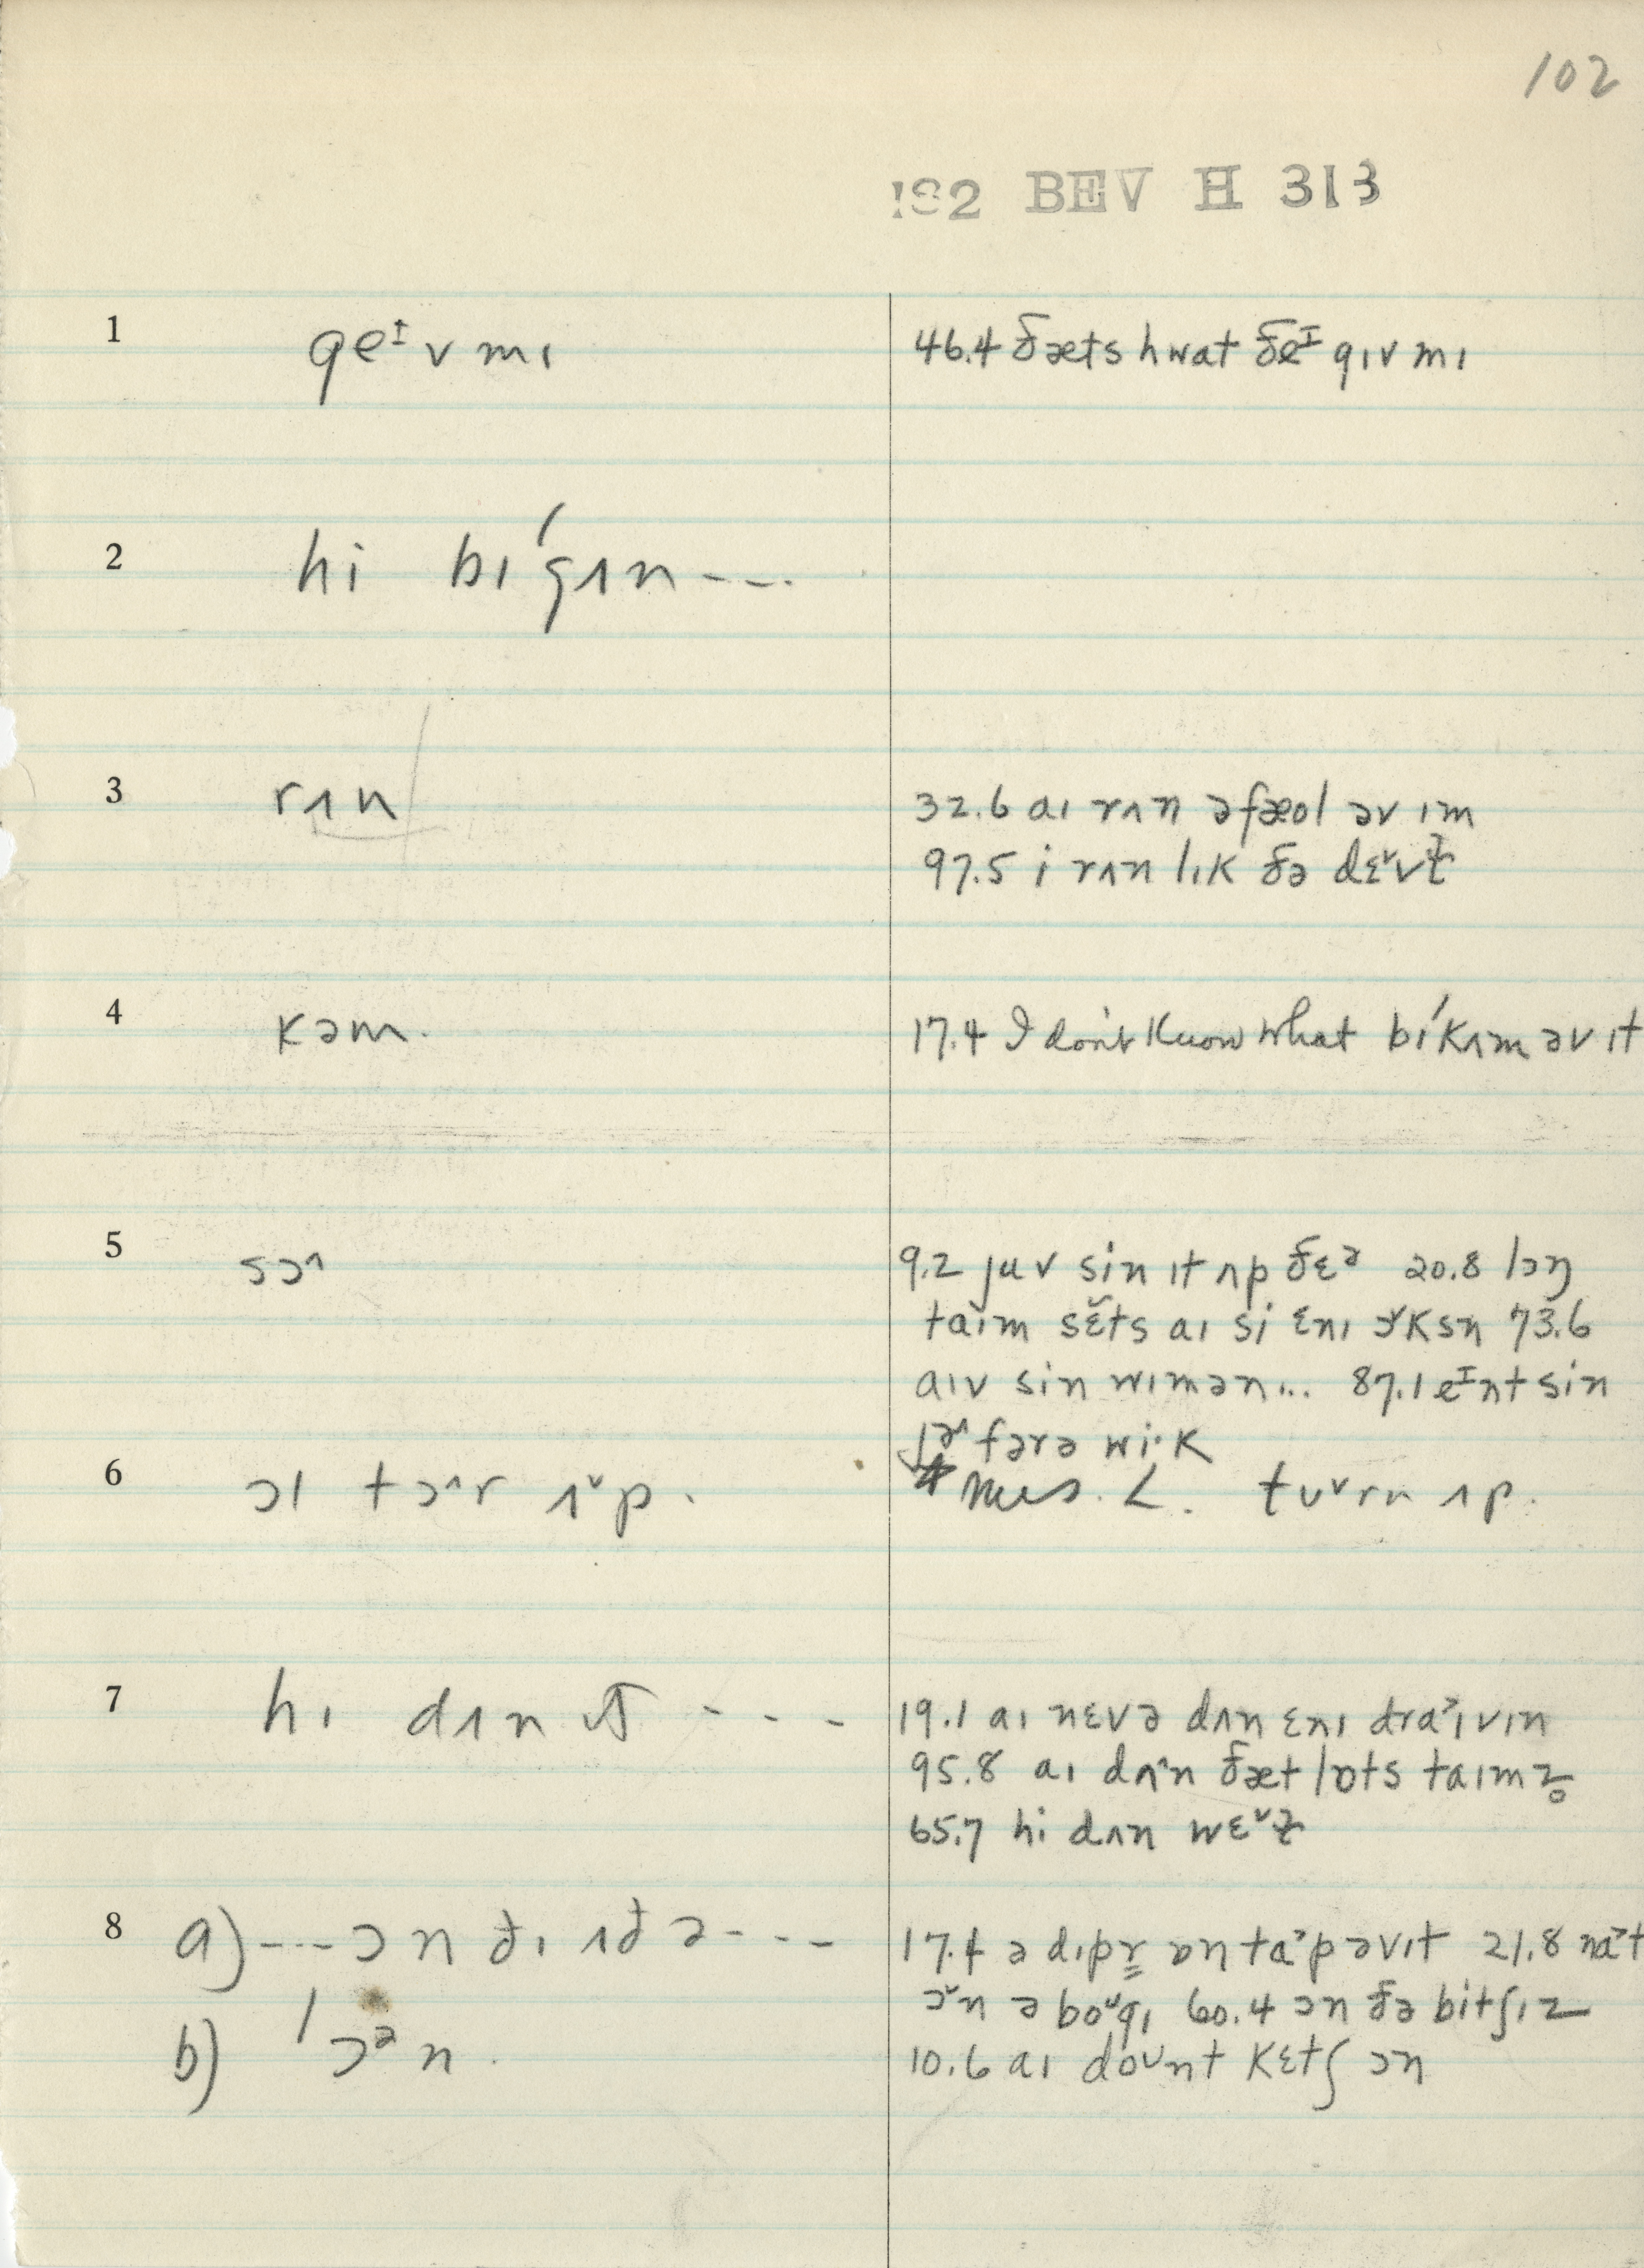 102
!S2 BEV H 313
1 geᴵv mɪ 46.4 ðæts hwat ðeᴵ gɪv mɪ
2 hi bɪˈgʌn ---
3 rʌn 32.6 aɪ rʌn əfæol əv ɪm
97.5 i rʌn lɪk ðə
4 kəm. 17.4 I don't know what bɪˈkʌm əv ɪt
5 sɔ^ 9.2 juv sin ɪt ʌp ðɛᵊ 20.8 lɔŋ
taɪm sɛ̆ts aɪ si ɛnɪ 73.6
aɪv sin wɪmən... 87.1 eᴵnt sin
fərə wi·k
6 ɔl tɔ^r ʌˇp. Mrs. L. tʊˇrn ʌp.
7 hɪ dʌn ɪt --- 19.1 aɪ nɛvə dʌn ɛnɪ dra˃ɪvɪn
95.8 aɪ dʌ^n ðæt lɒts taɪmz̥
65.7 hi dʌn wɛˇɫ
8 a) --- ɔn ðɪ ʌðə --- 17.4 ə dɪpr̳ ɒn ta˃p əvɪt 21.8 na˃t
ɔˇn ə boᶷgɪ 60.4 ɔn ðə bitʃɪz
b) ˈɔᵊn. 10.6 aɪ doᶷnt kɛtʃ ɔn